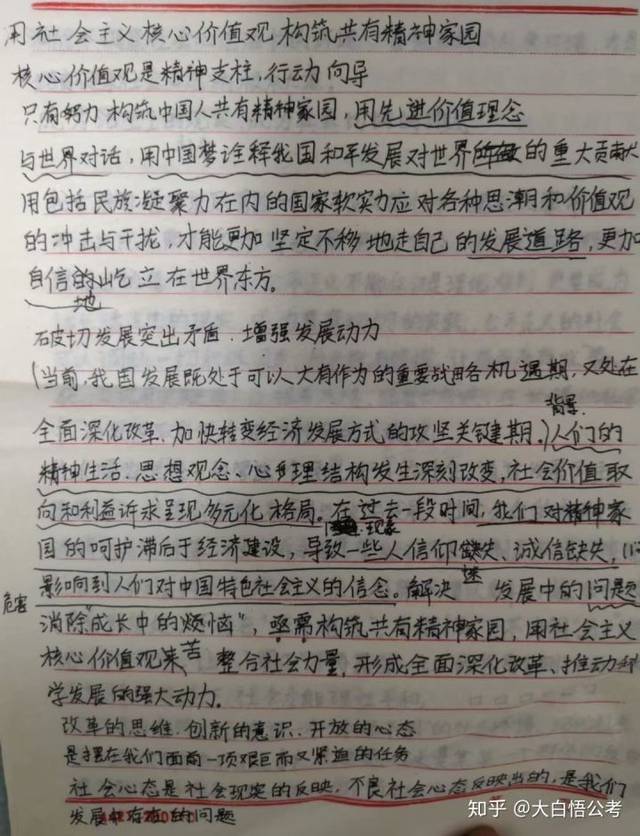 用社会主义核心价值观构筑共有精神家园
核心价值观是精神支柱,行动向导
只有努力构筑中国人共有精神家园,用先进价值理念
与世界对话,用中国梦诠释我国和平发展对世界的重大贡献
用包括民族凝聚力在内的国家软实力应对各种思潮和价值观
的冲击与干扰,才能更加坚定不移地走自己的发展道路,更加
自信地屹立在世界东方。
破切发展突出矛盾.增强发展动力
(当前,我国发展既处于可以大有作为的重要战略机遇期,又处在
背景
全面深化改革、加快转变经济发展方式的攻坚关键期。)人们的
精神生活、思想观念、心理结构发生深刻改变,社会价值取
向和利益诉求呈现多元化格局。在过去一段时间,我们对精神家
现象
园的呵护滞后于经济建设,导致一些人信仰缺失、诚信缺失,
影响到人们对中国特色社会主义的信念。解决 发展中的问题
危害
消除"成长中的烦恼",亟需构筑共有精神家园,用社会主义
核心价值观来 整合社会力量,形成全面深化改革、推动科
学发展的强大动力。
改革的思维.创新的意识.开放的心态
是摆在我们面前一项艰巨而又紧迫的任务
社会心态是社会现实的反映,不良社会心态反映出的,是我们
发展中存在的问题
知乎 @大白悟公考